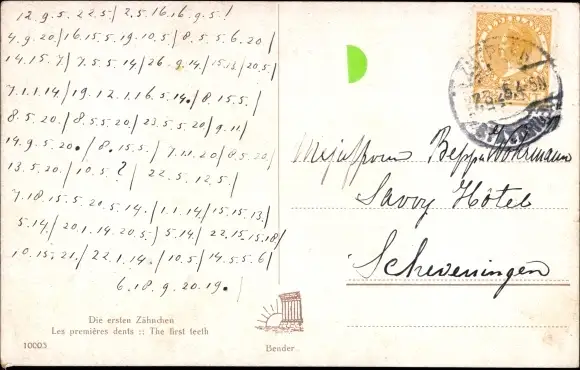 12.9.5. 22.5/ 2.5.16.16.9.5.!
4.9.20/16.15.5.19.10.5/8.5.5.6.20/
14.15.7/7.5.5.14/26.9.14/15.13/20.5/
7.1.14/19.12.1.16.5.14./8.15.5./
8.5.20/8.5.5.20/23.5.5.20/9.11/
14.9.5.20./8.15.5./7.11.20/8.5.20/
13.5.20/10.5.?/22.5.12.5./
7.18.15.5.20.5.14./1.1.14/15.15.13./
5.14/20.1.14.20.5/5.14/22.15.15.18/
10.15.21/22.1.14./10.5/14.5.5.6/
6.18.9.20.19./
Mejuffrouw Beppa Wohrmann
Savoy Hôtel
Scheveningen
Die ersten Zähnchen
Les premières dents :: The first teeth
10003
Bender